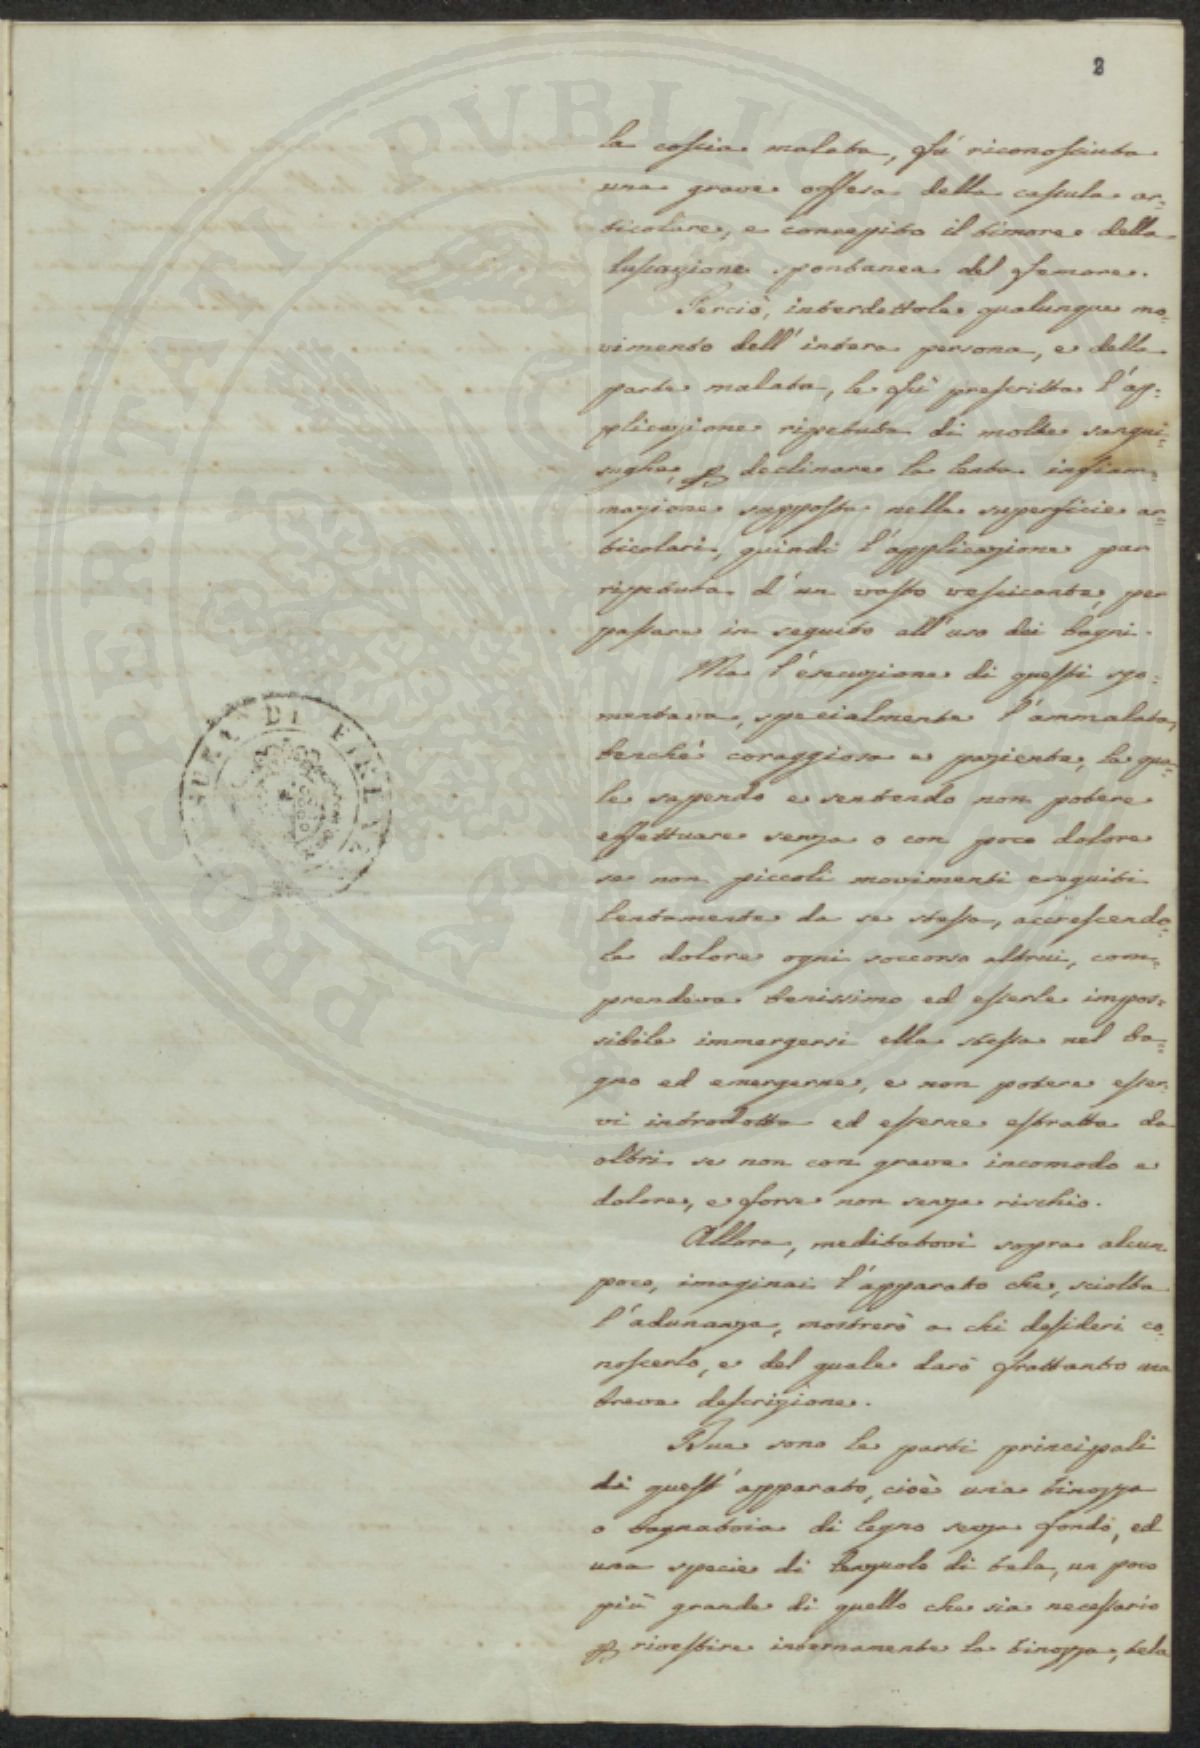 2
la coscia malata, fu riconosciuta
una grave offesa della cassula ar=
ticolare, e concepito il timore della
lussazione spontanea del femore.
Perciò, interdettole qualunque mo=
vimento dell'intera persona, e della
parte malata, le fu prescritta l'ap=
plicazione ripetuta di molte sangui=
sughe, declinare la lenta infiam=
mazione supposta nella superficie ar=
ticolari, quindi l'applicazione pur
ripetuta d'un vasto vescicante, per
passare in seguito all'uso dei bagni.
Ma l'esecuzione di questi spa=
mentava, specialmente l'ammalata,
benché coraggiosa e paziente, la qua=
le sapendo e sentendo non potere
effettuare senza o con poco dolore
se non piccoli movimenti eseguiti
lentamente da se stessa, accrescendo=
la dolore ogni soccorso altrui, com=
prendeva benissimo ed esserle impos=
sibile immergersi ella stessa nel ba=
gno ed emergerne, e non potere esser=
vi introdotta ed esserne estratta da
altri se non con grave incomodo e
dolore, e forse non senza rischio.
Allora, meditatovi sopra alcun
poco, imaginai l'apparato che, sciolta
l'adunanza, mostrerò a chi desideri co=
noscerlo, e del quale darò frattanto una
breve descrizione.
Due sono le parti principali
di quest'apparato, cioè una tinozza
o bagnatoia di legno senza fondo, ed
una specie di lenzuolo di tela, un poco
più grande di quello che sia necessario
rivestire internamente la tinozza, tela
PROSPERITATI PUBLICAE
DI FIRENZE